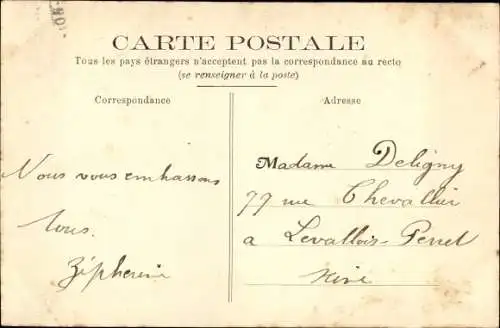 CARTE POSTALE
Tous les pays étrangers n'acceptent pas la correspondance au recto
(se renseigner à la poste)
Correspondance
Adresse
Nous vous embrassons
tous.
Madame Deligny
77 rue Chevallier
a Levallois-Perret